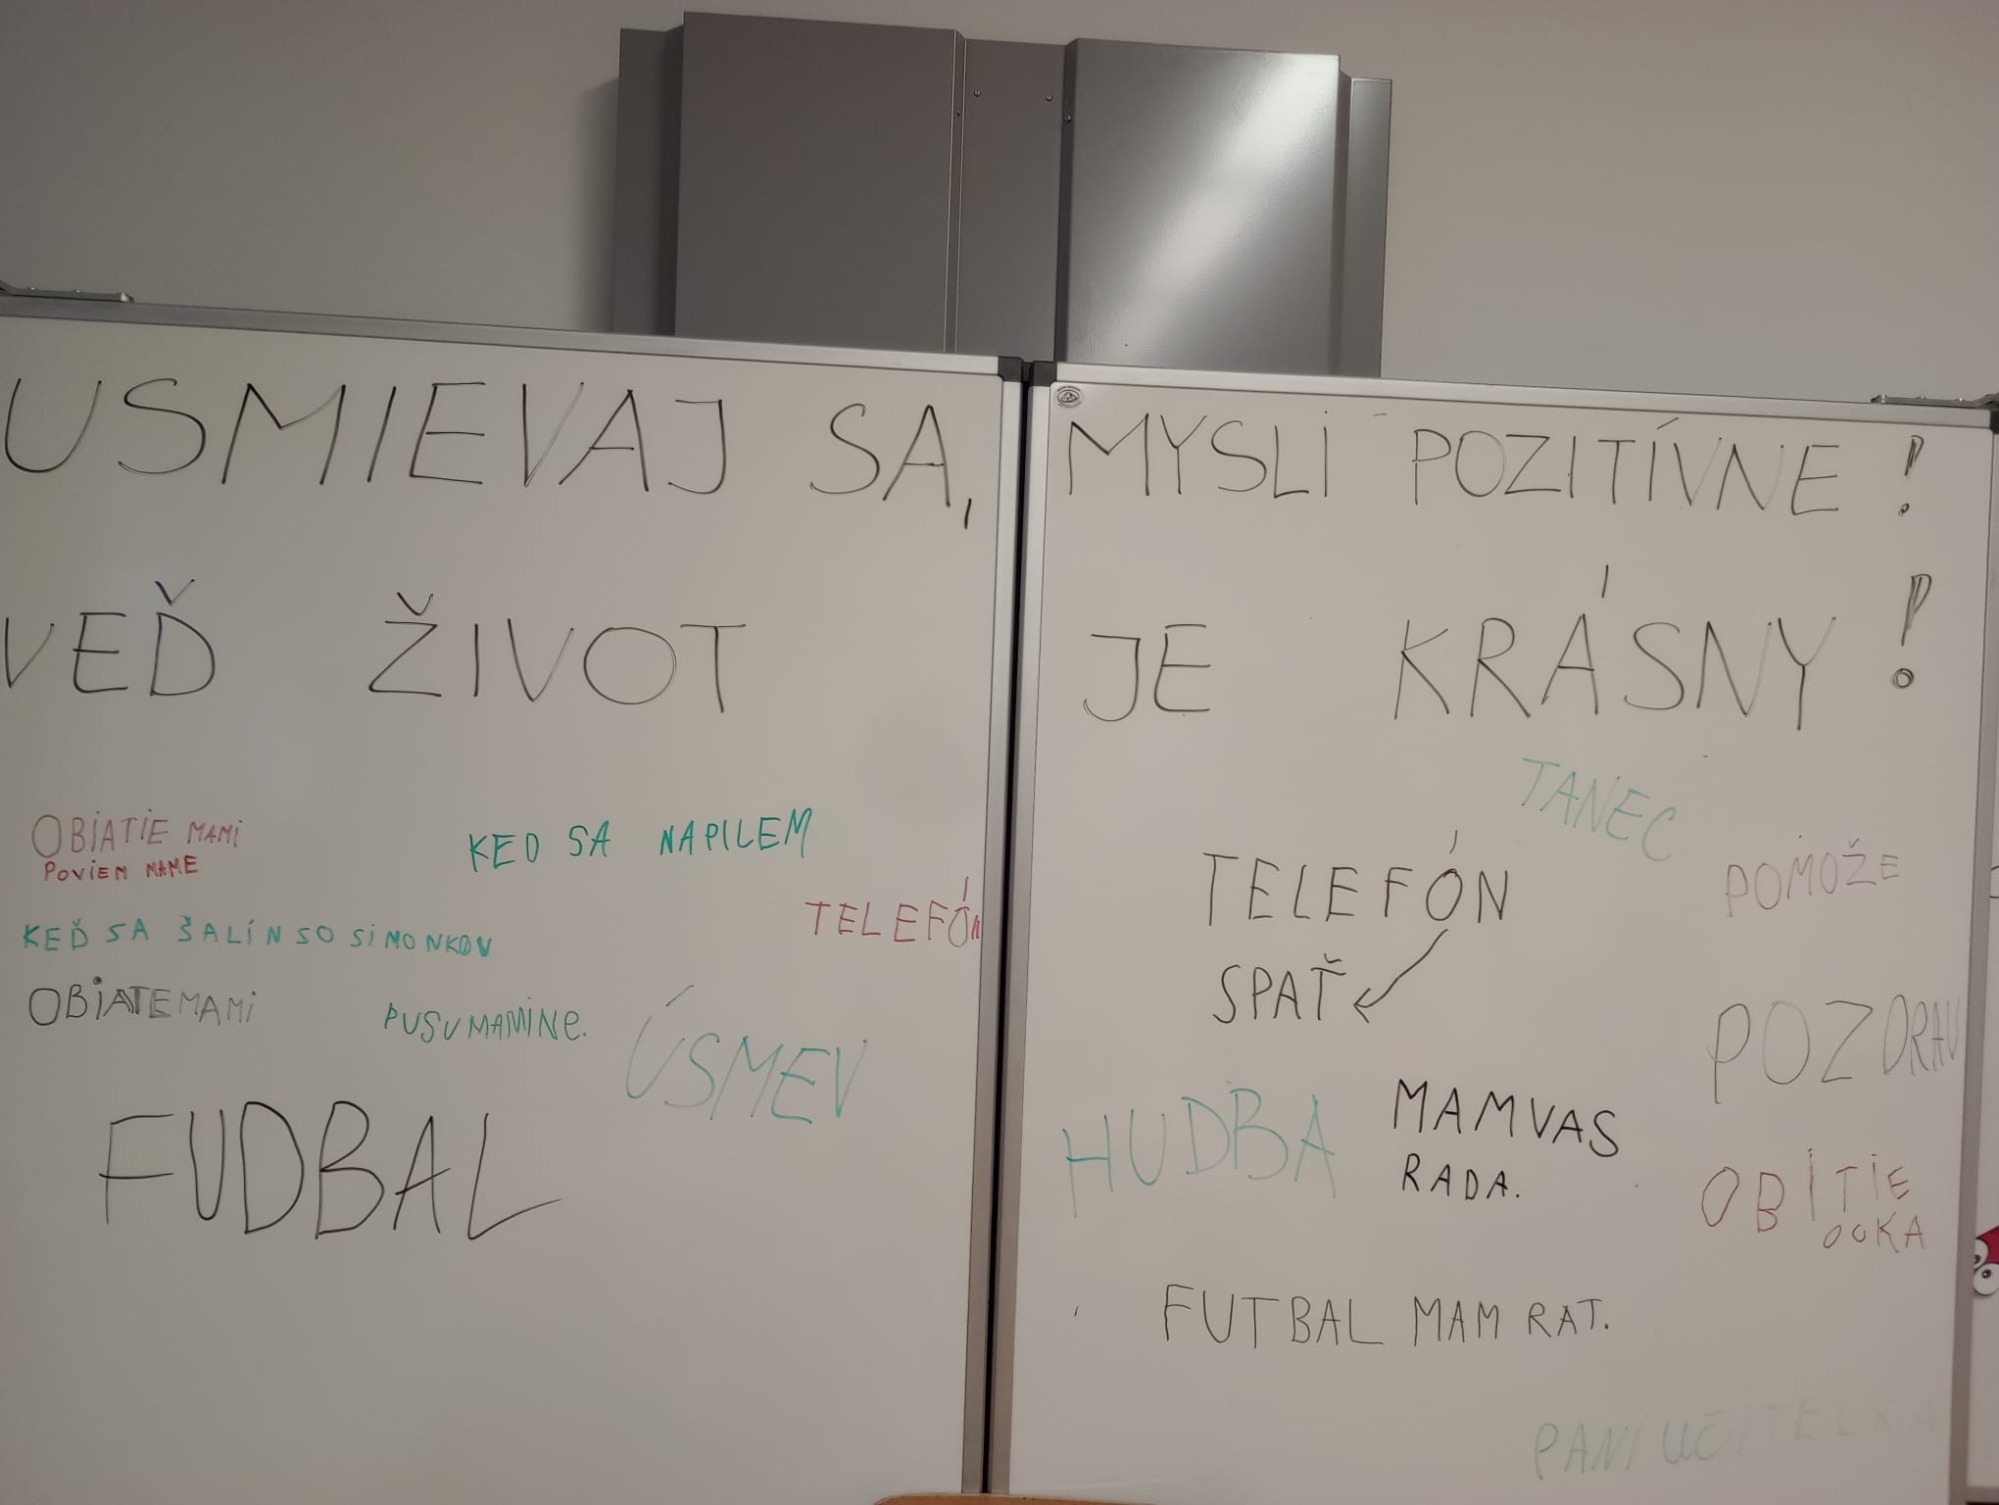 USMIEVAJ SA, MYSLI POZITÍVNE!
VEĎ ŽIVOT JE KRÁSNY!
OBIATIE MAMI
POVIEM MAME
KED SA NAPILEM
TELEFÓN
KEĎ SA ŠALÍN SO SIMONKOV
OBIATEMAMI
PUSUMAMINE.
ÚSMEV
FUDBAL
TANEC
TELEFÓN
POMOŽE
SPAŤ
POZDRAV
HUDBA
MAMVAS
RADA.
OBÍTIE
OCKA
FUTBAL MAM RAT.
PANI UČITELKA